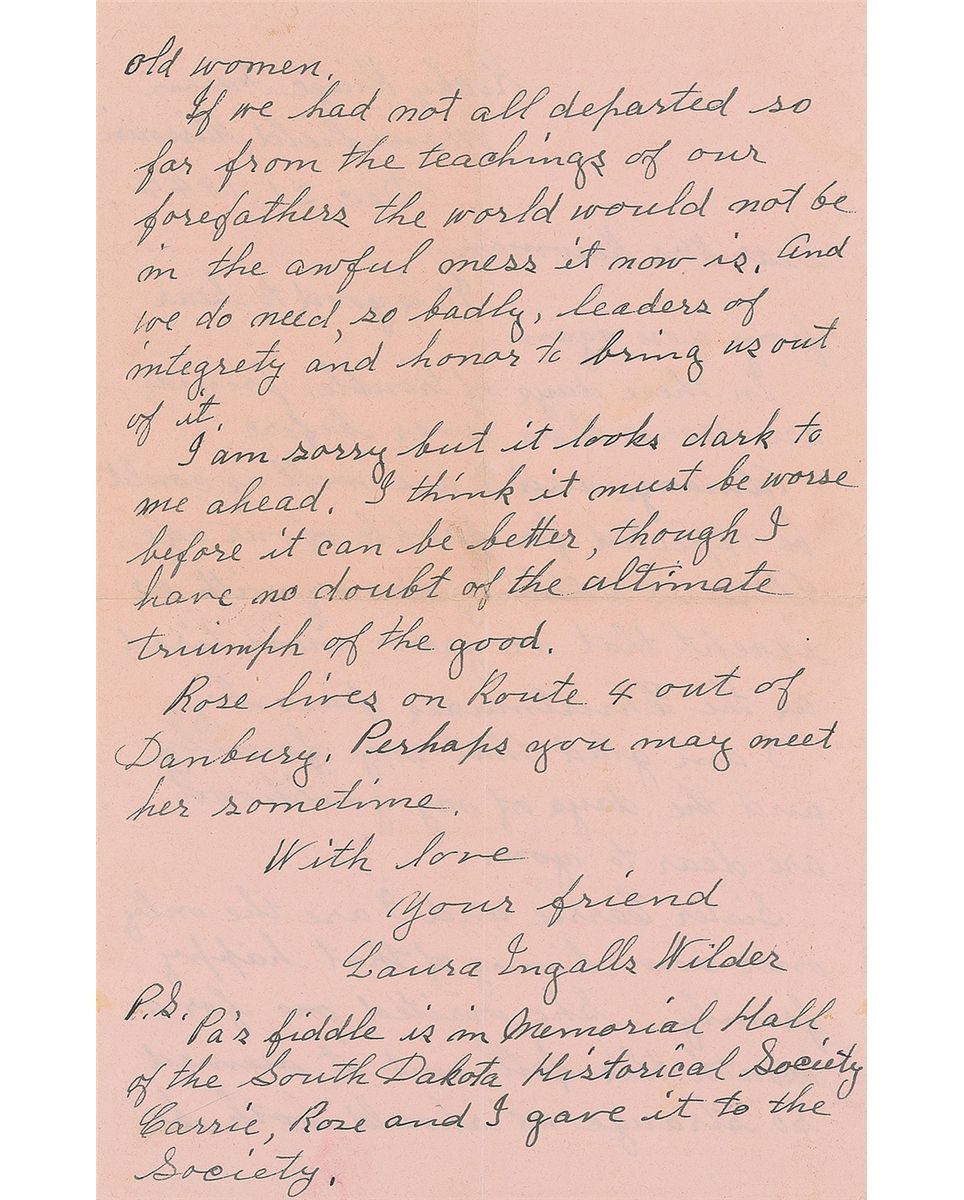 old women.
If we had not all departed so
far from the teachings of our
forefathers the world would not be
in the awful mess it now is. And
we do need, so badly, leaders of
integrety and honor to bring us out
of it.
I am sorry but it looks dark to
me ahead. I think it must be worse
before it can be better, though I
have no doubt of the ultimate
triumph of the good.
Rose lives on Route 4 out of
Danbury. Perhaps you may meet
her sometime.
With love
Your friend
Laura Ingalls Wilder
P.S.
Pa's fiddle is in Memorial Hall
of the South Dakota Historical Society
Carrie, Rose and I gave it to the
Society.